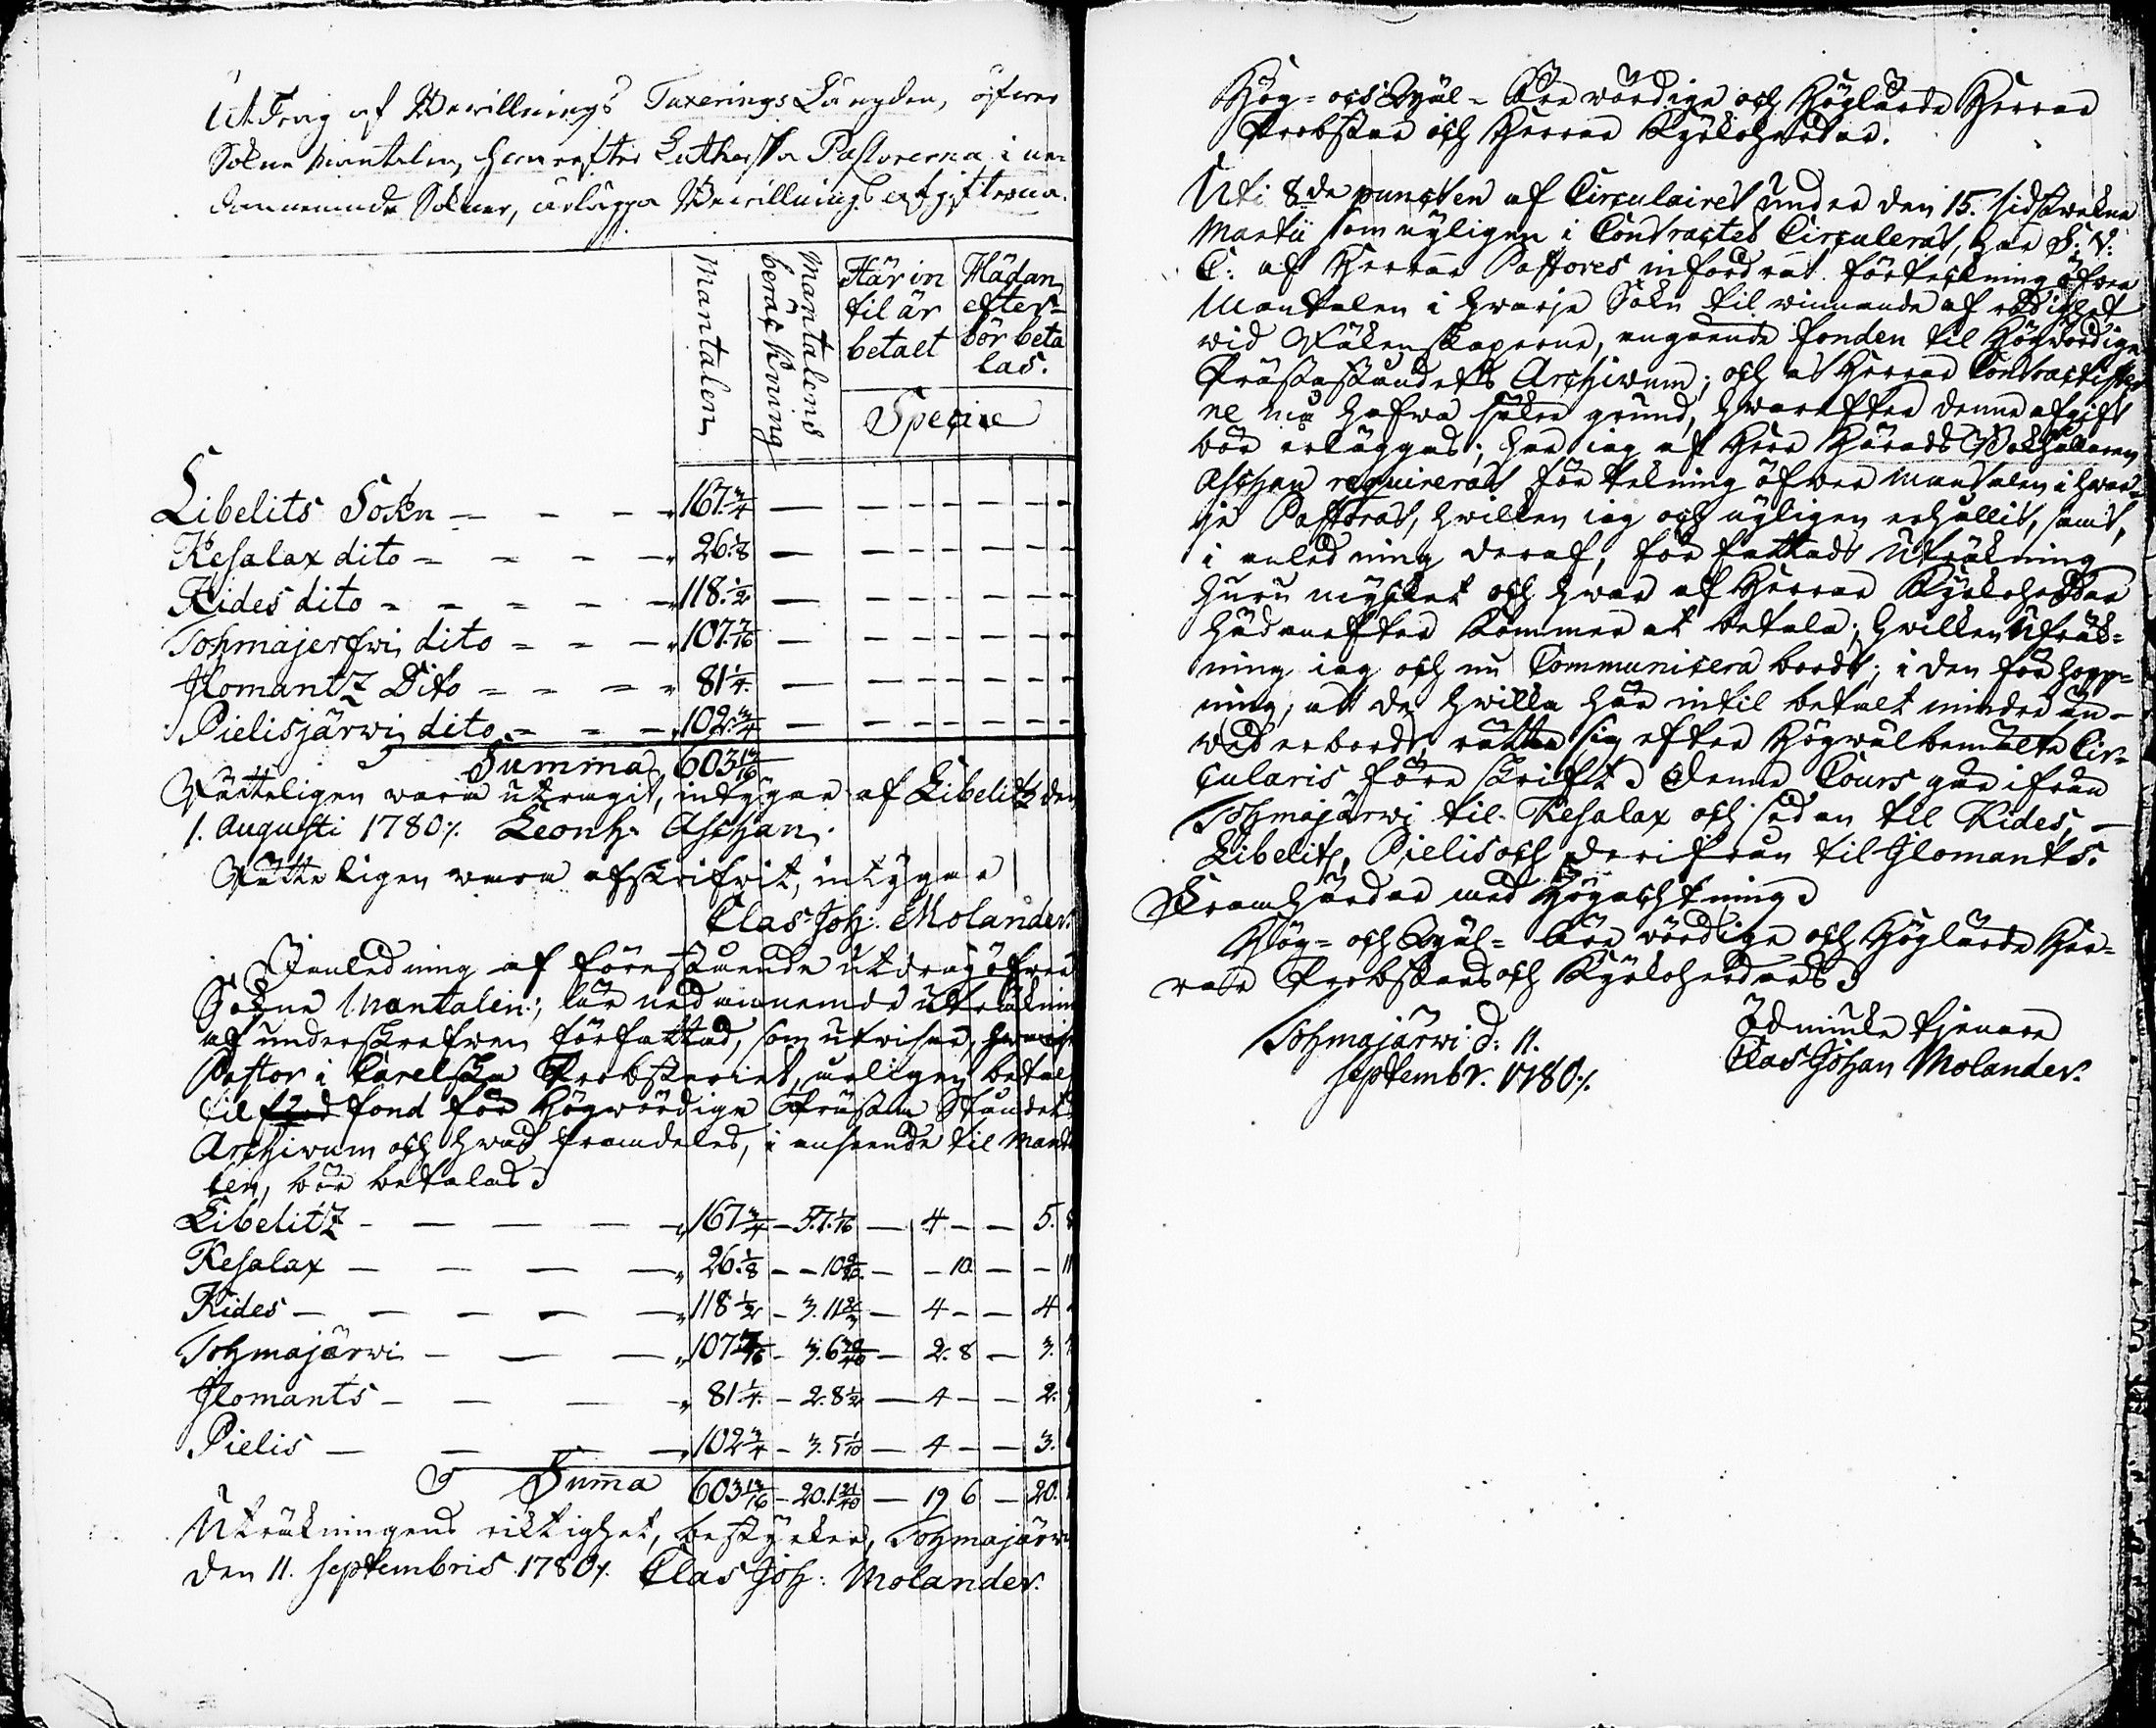 Utdrag af Bewillnings Taxerings Längden, öfwer
Sokne Mantalen, hwarefter Lutherska Pastorerna i ne-
dannemnde Soknar, ärlägga Bewillnings afgifterna.
Mantalen
Mantalens beräkning
Här in til är betalt
Hädan efter bör beta las.
Specie
Libelits Sokn - - - " 167.3/4 - - - - - - -
Kesalax dito - - - - " 26.1/8 - - - - - - -
Kides dito - - - - - " 118.1/2 - - - - - - -
Tohmajerfwi dito - - - " 107.7/16 - - - - - - -
Ilomantz Dito - - - - " 81 1/4. - - - - - - -
Pielisjärwi dito - - - " 102.3/4 - - - - - - -
Summa 603 13/16
Rätteligen wara utdragit, intygar af Libelitz den
1. Augusti 1780 ./. Leonh: Aschan.
Rätteligen wara afskrifwit, intygar
Clas Joh: Molander.
I anledning af förestående utdrag öfwer
Sokne Mantalen; är nedannemde uträkning
af underskrefwen författad, som utwisar, hwarje
Pastor i Carelska Probsteriet, årligen betalt
til fond för Högwördige Präste Ståndets
Archivum och hwad framdeles, i anseende til Manta
len, bör betalas.
Libelitz - - - - - " 167 3/4 - 5.7.1/10 - 4 - - 5.
Kesalax - - - - " 26.1/8 - - 10 9/20 - - 10 - - 11
Kides - - - - - " 118 1/2 - 3.11 2/5 - 4 - - 4
Tohmajärwi - - - " 107 7/16 - 3.6 39/40 - 2.8 - 3.
Ilomants - - - - " 81 1/4. - 2.8 1/2 - 4 - - 2.
Pielis - - - - " 102 3/4 - 3.5 1/10 - 4 - - 3.
Summa 603 13/16 - 20.1 21/40 - 19 6 - 20.
Uträkningens riktighet, bestyrker, Tohmajärwi
den 11. Septembris 1780 ./. Clas Joh: Molander.
Hög- och Wäl- Äre wördige och Höglärde Herrar
Probstar och Herrar Kyrkoherdar.
Uti 8de puncten af Circulairet under den 15. sidstwekne
Martii som nyligen i Contractet Circulerat, har S: V:
C: af Herrar Pastores infordrat förtekning öfwer
Mantalen i hwarje Sokn til winnande af redighet
wid Räkenskaperne, angående fonden til Högwördige
Prästeståndets Archivum; och at Herrar Contractister
ne må hafwa säker grund, hwarefter denne afgift
bör erläggas; har jag af Herr Härads Bokhållaren
Aschan requirerat förtekning öfwer Mantalen i hwar-
je Pastorat, hwilken jag och nyligen erhållit, samt,
i anledning deraf, författadt Uträkning
huru mycket och hwar af Herrar Kyrkoherdar
hädanefter kommer at betala; hwilken Uträk-
ning jag och nu Communicera bordt; i den förhopp-
ning, att de hwilka här intil betalt mindre än
wed erbordt, rätta sig efter Högwälbemälte Cir-
cularis föreskrift. Denne Cours går ifrån
Tohmajärwi til Kesalax och sedan til Kides, -
Libelitz, Pielis och derifrån til Ilomants.
Framhärdar med Högachtning
Hög- och Wäl- Äre wördige och Höglärde Her-
rar Probstars och Kyrkoherdars
Tohmajärwi d: 11.
Septembr. 1780 ./.
Ödmiuke tjenare
Clas Johan Molander.